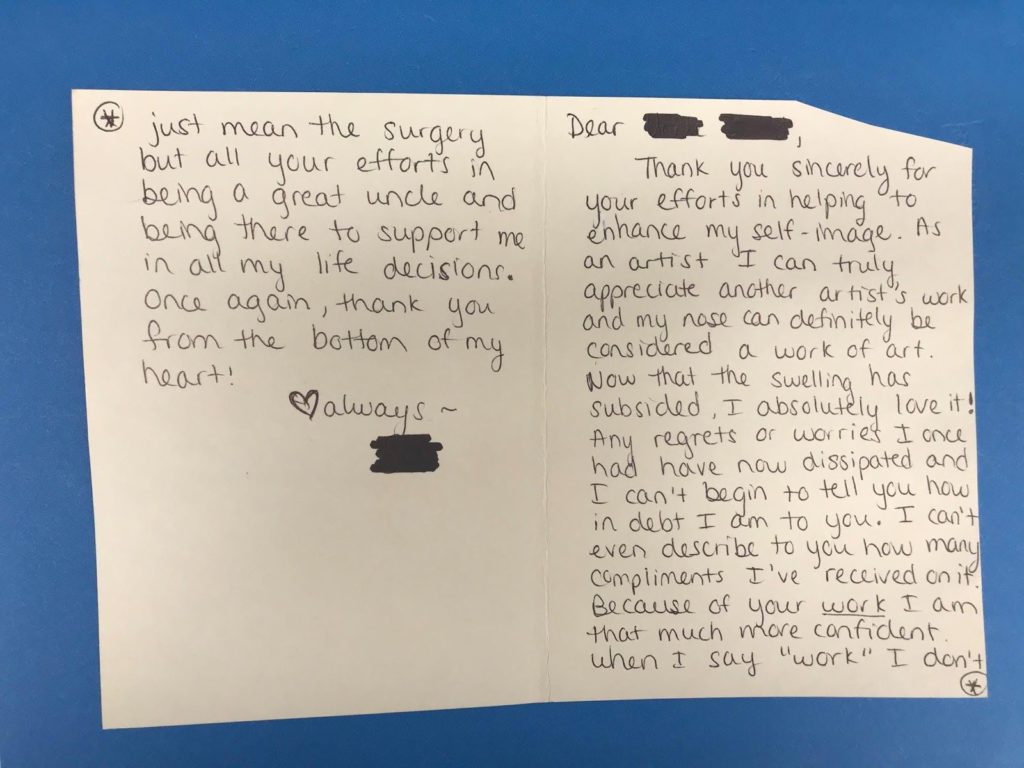 Dear
Thank you sincerely for
your efforts in helping to
enhance my self-image. As
an artist I can truly
appreciate another artist's work
and my nose can definitely be
considered a work of art.
Now that the swelling has
subsided, I absolutely love it!
Any regrets or worries I once
had have now dissipated and
I can't begin to tell you how
in debt I am to you. I can't
even describe to you how many
compliments I've received on it.
Because of your work I am
that much more confident.
When I say "work" I don't
*
* just mean the surgery
but all your efforts in
being a great uncle and
being there to support me
in all my life decisions.
Once again, thank you
from the bottom of my
heart!
♡always ~